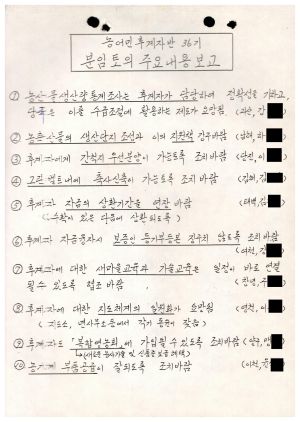 농어민후계자반 36기
분임토의 주요내용 보고
① 농산물생산량통계조사는 후계자가 담당하여 정확성을 기하고,
당국은 이를 수급조절에 활용하는 제도가 요망됨 (과산, 감
② 농특산물의 생산단지 조성과 이의 지원책 강구바람 (남해, 하
③ 후계자에게 간척지 우선분양이 가능토록 조치 바람 (당진, 이
④ 그린벨트내에 축사신축이 가능토록 조치 바람 (김해, 김
⑤ 후계자 자금의 상환기간을 연장 바람 (태백, 김
(수확이 있은 다음에 상환되도록)
⑥ 후계자 자금융자시 보증인 등기부등본 징구치 않도록 조치바람 (여천, 김
⑦ 후계자에 대한 새마을교육과 기술교육은 일정이 바로 연결
될수 있도록 협조 바람 (창녕, 주
⑧ 후계자에 대한 지도체계의 일원화가 요망됨 (영천, 이
(지도소, 면사무소등에서 각기 움직이 잦음)
⑨ 후계자도 「복합영농회」에 가입될 수 있도록 조치바람
(새로운 농사기술 및 신품종 보급 혜택)
⑩ 농기계 부품공급이 잘되도록 조치바람 (이천, 김